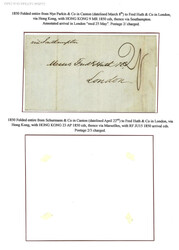 1850 Folded entire from Nye Parkin & Co in Canton (datelined March 8th) to Fred Huth & Co in London,
via Hong Kong, with HONG KONG 9 MR 1850 cds, thence via Southampton.
Annotated arrival in London "recd 25 May". Postage 2/ charged.
via Southampton
Messrs Fredk Huth & Co
London
1850 Folded entire from in Canton (datelined April 22nd) to Fred Huth & Co in London, via
Hong Kong, with HONG KONG 23 AP 1850 cds, thence via Marseilles, with 1850 arrival cds.
Postage 2/ charged.